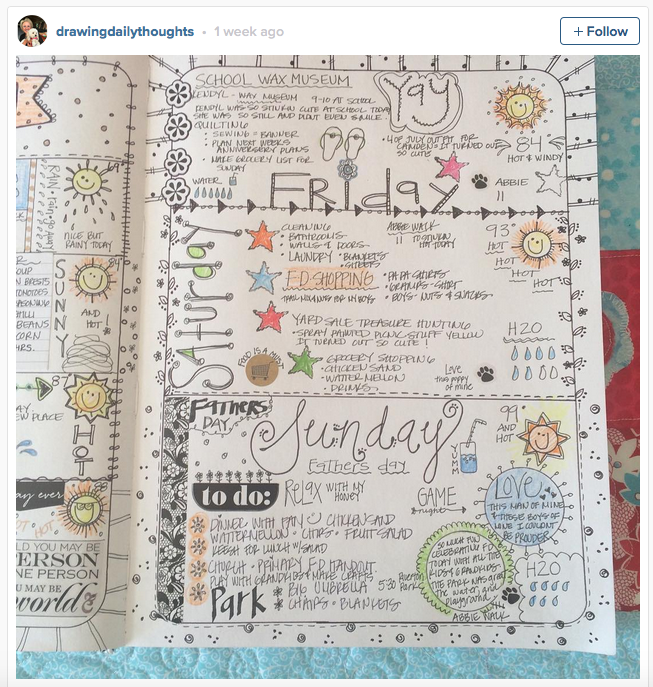 drawingdailythoughts • 1 week ago
+ Follow
SCHOOL WAX MUSEUM
KENDYL - WAX MUSEUM 9-10 AT SCHOOL
KENDYL WAS SO STINKIN CUTE AT SCHOOL TODAY
SHE WAS SO STILL AND DIDNT EVEN SMILE
Yay
QUILTING
SEWING = BANNER
PLAN NEXT WEEKS
ANNIVERSERY PLANS
MAKE GROCERY LIST FOR
SUNDAY
4 OF JULY OUTFIT FOR
CAMDEN = IT TURNED OUT
SO CUTE
84°
HOT & WINDY
WATER
FRIday
ABBIE
11
Saturday
CLEANING
• BATHROOMS
• WALLS & DOORS
• LAUNDRY • BLANKETS
• SHEETS
ABBIE WALK
11 TO STINKIN
HOT TODAY
93°
HOT
HOT
HOT
HOT
F.D. SHOPPING
• PAPA SHIRTS
• GRAMPS - SHIRT
• BOYS - NUTS & SNACKS
YARD SALE TREASURE HUNTING
• SPRAY PAINTED PICNIC STUFF YELLOW
IT TURNED OUT SO CUTE!
H2O
FOOD IS A MUST
GROCERY SHOPPING
• CHICKEN SAND
• WATTERMELLON
• DRINKS
Love
this puppy
of mine
FATHERS
DAY
Sunday
Fathers day
YUMM
99
AND
HOT
to do:
RELAX WITH MY
HONEY
GAME
night
LOVE
THIS MAN OF MINE
& THOSE BOYS OF
MINE I COULDNT
BE PROUDER
DINNER WITH FAMY CHICKEN SAND
WATTERMELLON • CHIPS • FRUIT SALAD
REESA FOR LUNCH W/SALAD
CHURCH • PRIMARY F.D HANDOUT
PLAY WITH GRANDKIDS & MAKE CRAFTS
Park
BIG UMBRELLA
CHAIRS • BLANKETS
5:30
SO MUCH FUN
CELEBRATING F.D
TODAY WITH ALL THE
KIDS & GRANDKIDS
THE PARK WAS great
The water and
playground
H2O
ABBIE WALK
69
RAIN
NICE BUT
RAINY TODAY
SUNNY
84
AND
HOT!
BEANS
CORN
87
NEW PLACE
HOT
HOT
HOT
YOU MAY BE
PERSON
ONE PERSON
YOU MAY BE
world